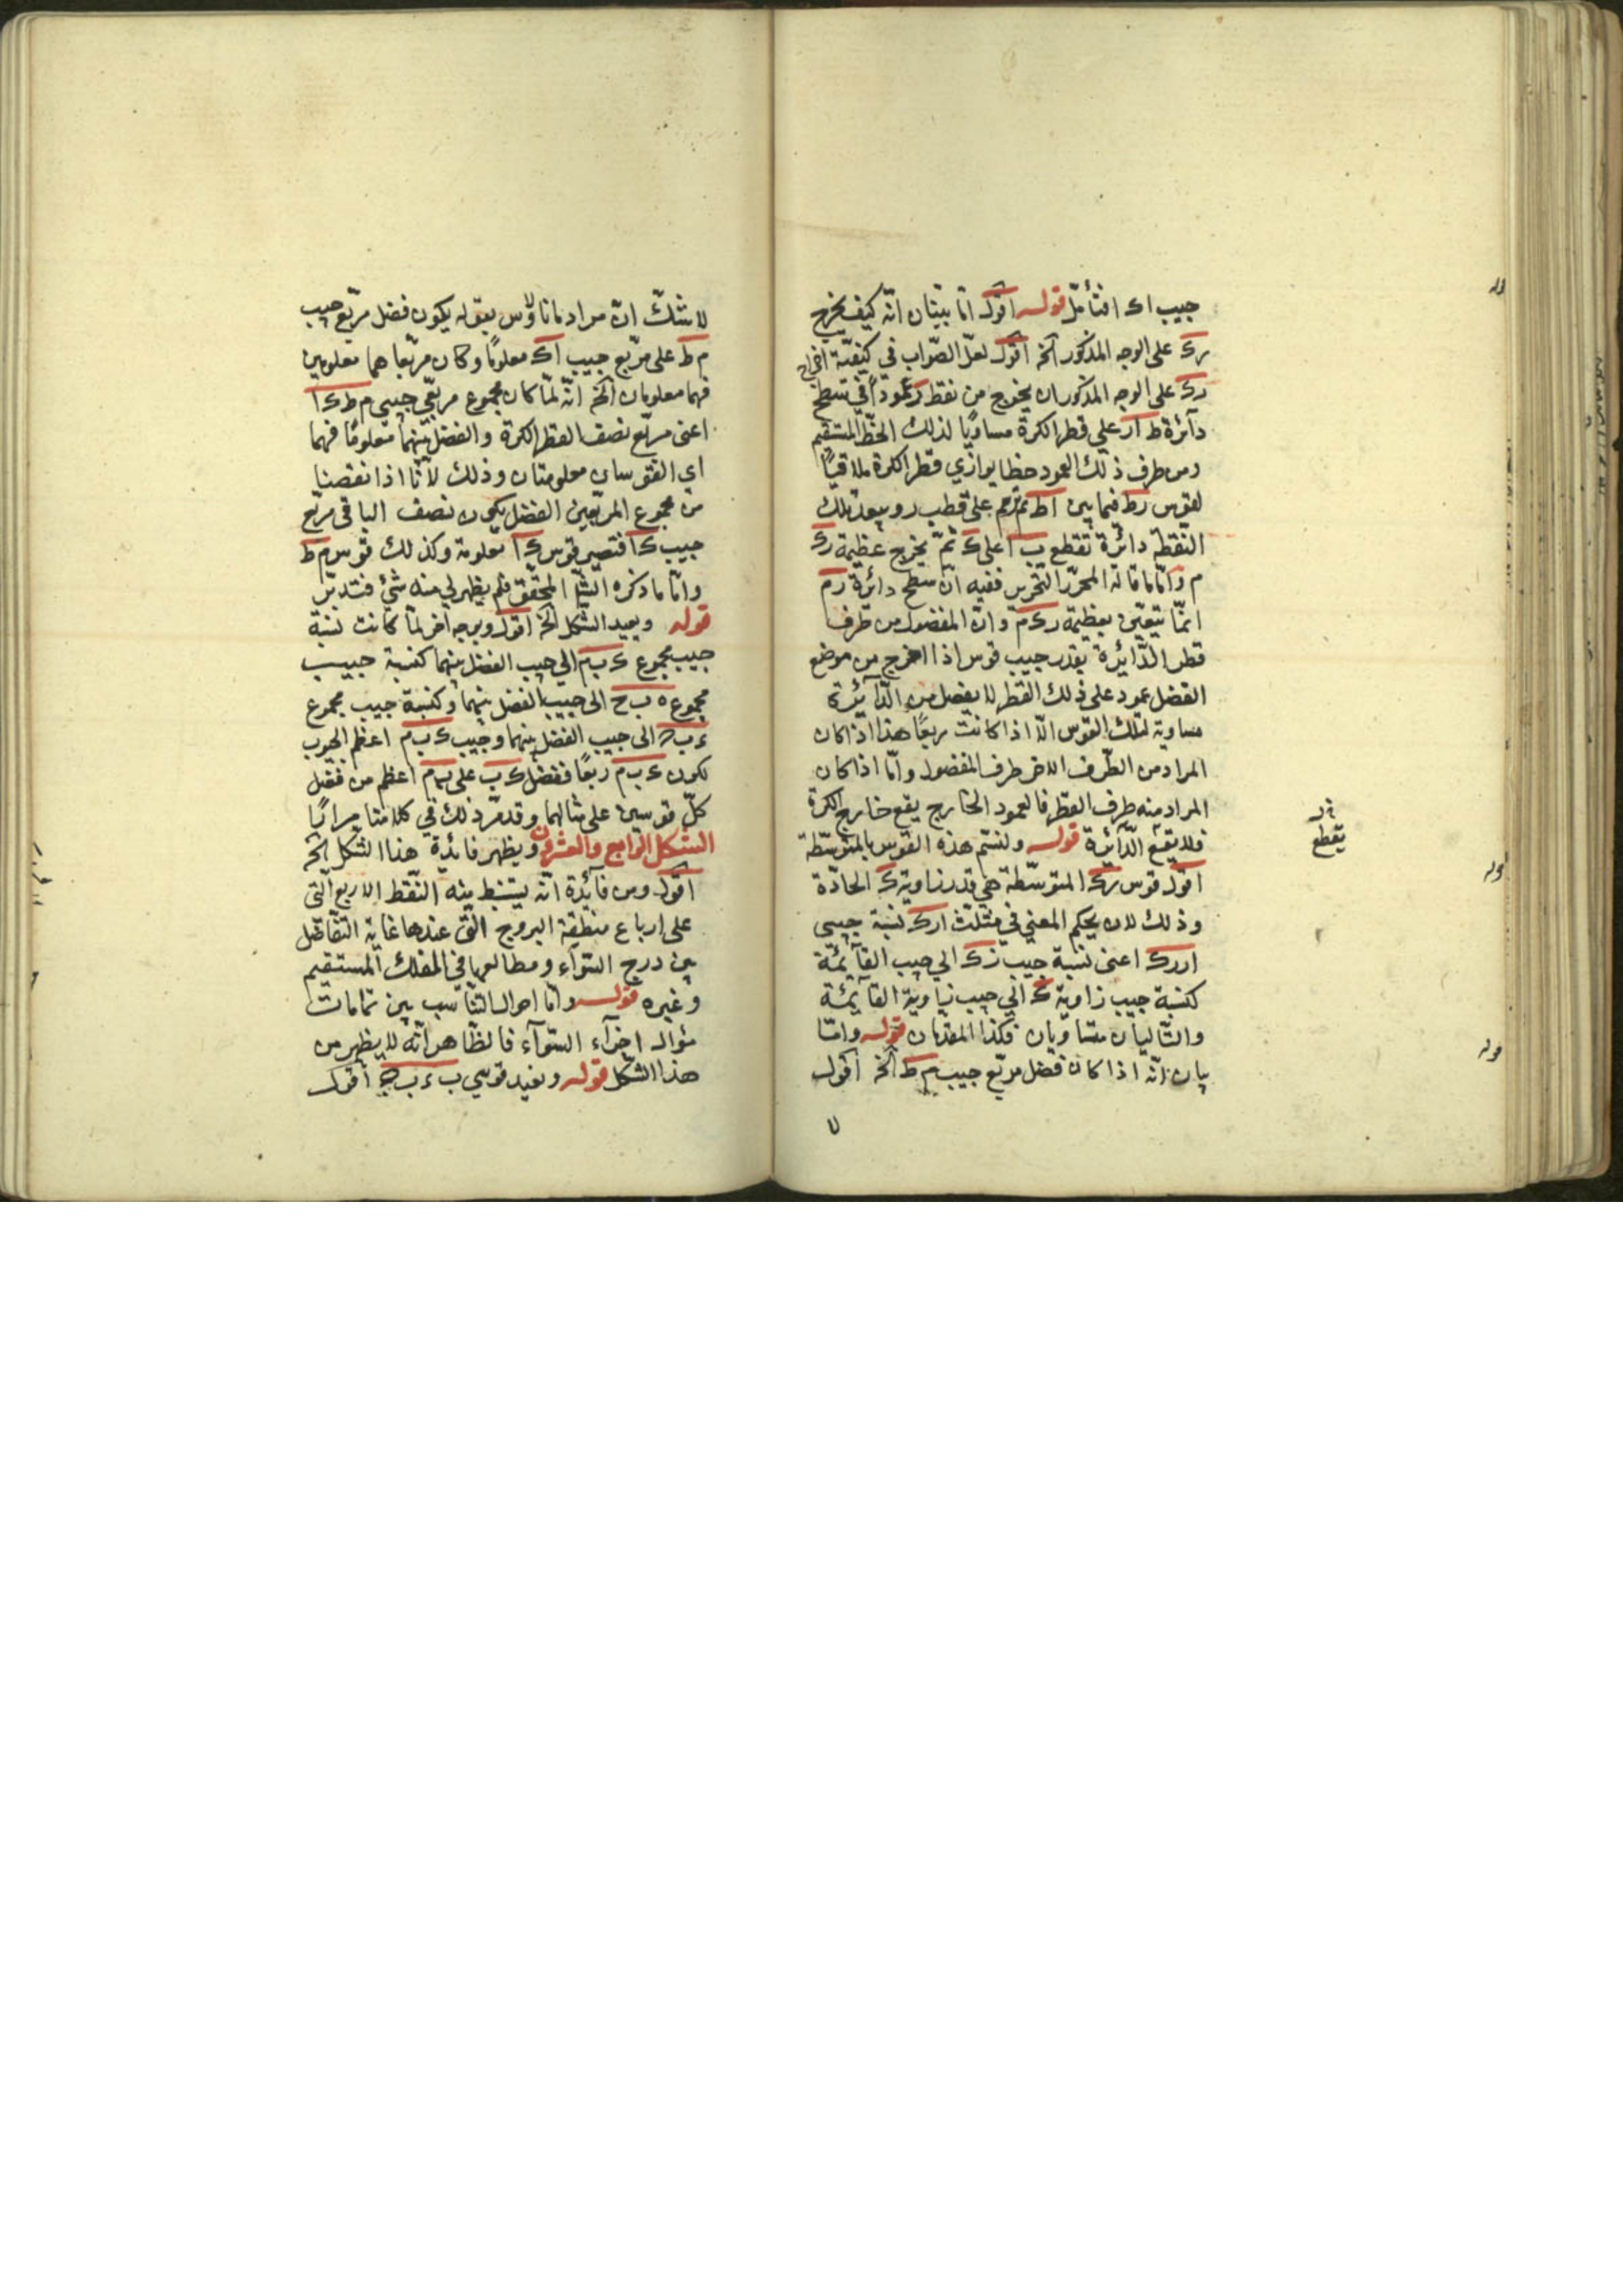 جيب اك افتأمل قوله اقول اما بيان انه كيف يخرج
رك على الوجه المذكور آلخ اقول لعل الصواب في كيفية اخراج
رك على الوجه المذكور ان يخرج من نقطة ر عمودا في سطح
دآئرة ط ار على قطر الكرة مساويا لذلك الخط المستقيم
ومن طرف ذلك العمود خطا يوازي قطر الكرة ملاقيا
لقوس رط فيما بين اط ثم نرسم على قطب ر وببعد تلك
النقطة دائرة تقطع ب ا على ك ثم يخرج عظيمة رك
م واما ما قاله المحرر التحرير ففيه ان سطح دائرة رم
انما يتعين بعظيمة رك م وان المفضول من طرف
قطر الدائرة بقدر جيب قوس اذا اخرج من موضع
الفصل عمود على ذلك القطر لا يفصل من الدآئرة
مساوية لتلك القوس الا اذا كانت ربعا هذا اذا كان
المراد من الطرف الاخر طرف المفضول واما اذا كان
المراد منه طرف القطر فالعمود الخارج يقع خارج الكرة
فلا يقع الدآئرة قوله ولنسم هذه القوس بالمتوسطة
اقول قوس رك المتوسطة هي قدر زاوية ك الحادة
وذلك لان بحكم المغني في مثلث ارك نسبة جيبي
اررك اعنى نسبة جيب زك الي جيب القآئمة
كنسبة جيب زاوية ك الي جيب زاوية القآئمة
والتاليان متساويان فكذا المقدمان قوله واما
بيان انه اذا كان فضل مربع جيب م ط آلخ اقول
لا
يقطع
قوله
قوله
لا شك ان مراد مانالاؤس بقوله يكون فضل مربع جيب
م ط على مربع جيب اك معلوما وكان مربعا هما معلومين
فهما معلومان آلخ انه لما كان مجموع مربعي جيبي م ط ك ا
اعنى مربع نصف القطر الكرة والفضل بينهما معلوما فهما
اي القوسان معلومتان وذلك لانا اذا نقصنا
من مجموع المربعين الفضل يكون نصف الباقى مربع
جيب ك ا فتصير قوس ك ا معلومة وكذلك قوس م ط
واما ما ذكره الش المحقق فلم يظهر لي منه شئ فتدبر
قوله ويعيد الشكل آلخ اقول وبوجه اخر لما كانت نسبة
جيب مجموع ء ب م الي جيب الفضل بينهما كنسبة جيب
مجموع ه ب ح الى جيب الفضل بينهما وكنسبة جيب مجموع
ء ب الى جيب الفضل بينهما وجيب ء ب م اعظم الجيوب
لكون ء ب م ربعا ففضل ء ب على ب م اعظم من فضل
كل قوسين على مثالهما وقد مر ذلك في كلامنا مرارا
الشكل الرابع والعشرون ويظهر فائدة هذا الشكل آلخ
اقول ومن فآئدة انه يستنبط منه النقط الاربع التى
على ارباع منطقة البروج التى عندها غاية التفاضل
بين درج السوآء ومطالعها في الفلك المستقيم
وغيره قوله واما احوال التناسب بين تمامات
مثوال اجزآء السوآء فالظاهر انه لا يظهر من
هذا الشكل قوله ونفيد قوسي ب ء ب ج اقول